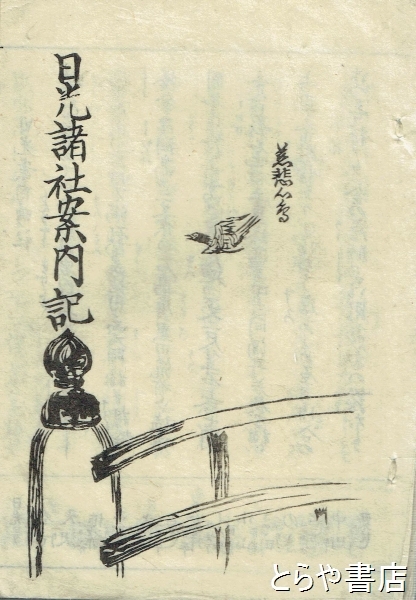 日光諸社案内記
慈悲心鳥
とらや書店